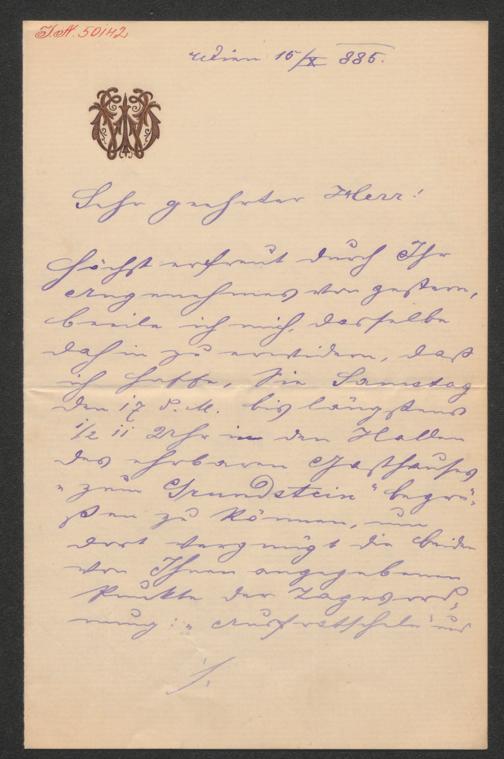 I.N. 50142
Wien 15/X 885.
Sehr geehrter Herr!
Höchst erfreut durch Ihr
Angenehmes von gestern,
beeile ich mich, dasselbe
dahin zu erwidern, daß
ich hoffe, Sie Samstag
den 17 d. M. bis längstens
1/2 11 Uhr in den Hallen
des ehrbaren Gasthauses
"zum Grundstein" begrü-
ßen zu können, um
dort vergnügt die beiden
von Ihnen angegebenen
Punkte der Tagesord-
nung: "Ausfratscheln" und